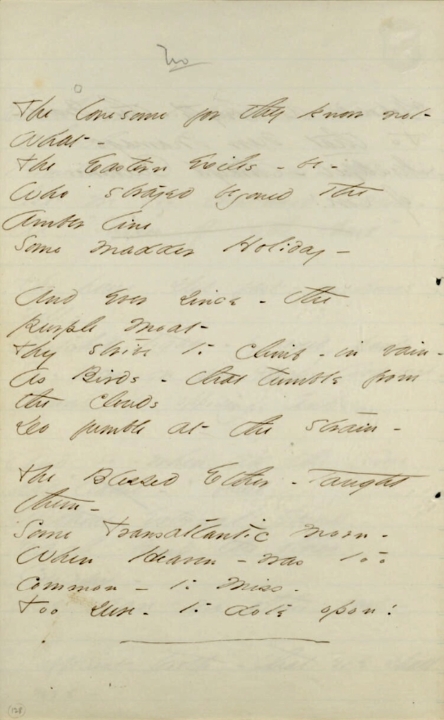 No
The lonesome for they know not
What -
The Eastern Exiles - be -
Who strayed beyond the
Amber line
Some madder Holiday -
And ever since - the
purple Moat
They strive to climb - in vain -
As Birds - that tumble from
the clouds
Do fumble at the strain -
The Blessed Ether - taught
them -
Some Transatlantic Morn -
When Heaven - was too
common - to miss -
Too sure - to dote upon!